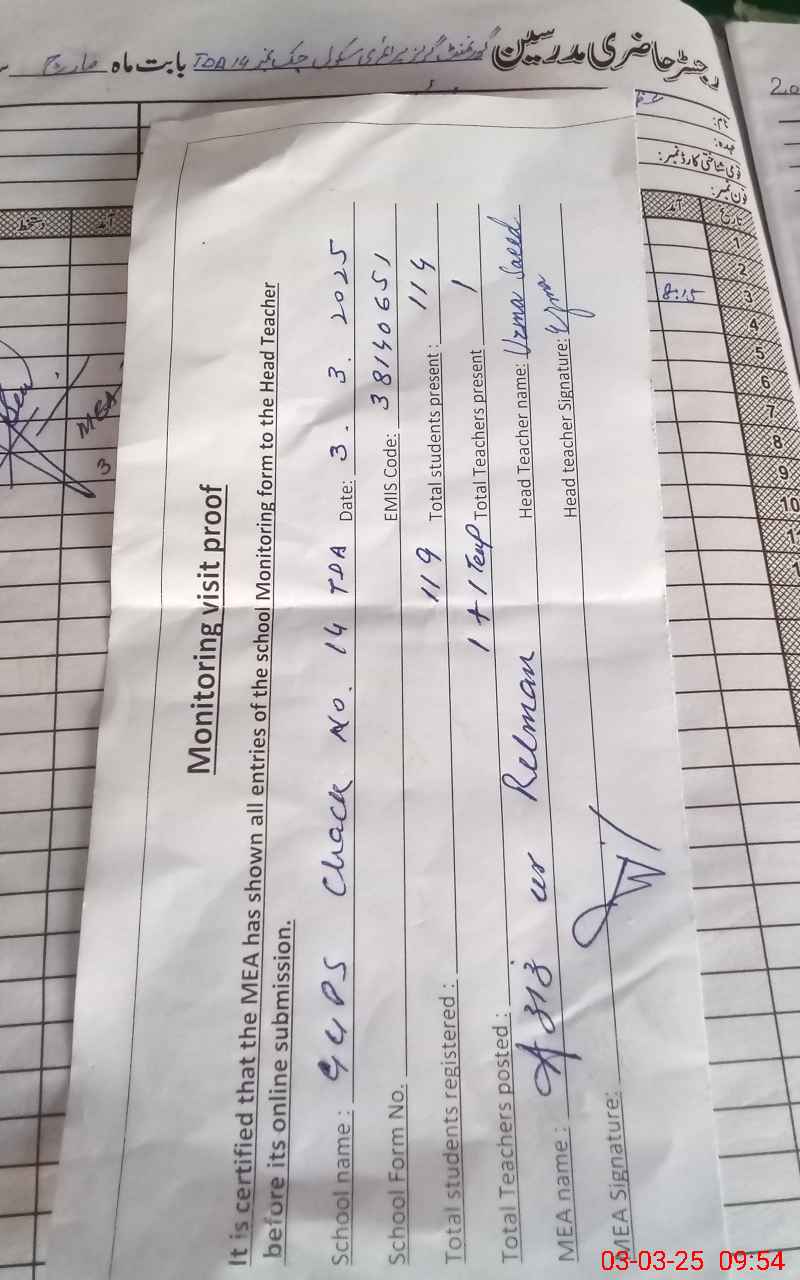 رجسٹر حاضری مدرسین گورنمنٹ گرلز پرائمری سکول چک نمبر 14 TDA بابت ماہ مارچ
نام:
عہدہ:
قومی شناختی کارڈ نمبر:
فون نمبر:
تاریخ آمد
1
2
3 8:15
4
5
6
7
8
9
10
آمد دستخط
MEA
3
Monitoring visit proof
It is certified that the MEA has shown all entries of the school Monitoring form to the Head Teacher
before its online submission.
School name: GGPS Chack No. 14 TDA Date: 3. 3. 2025
School Form No. EMIS Code: 38140651
Total students registered: 119 Total students present: 114
Total Teachers posted: 1 + 1 Temp Total Teachers present 1
MEA name: Aziz ur Rehman Head Teacher name: Uzma Saeed
MEA Signature: Head teacher Signature: Uzma
03-03-25 09:54